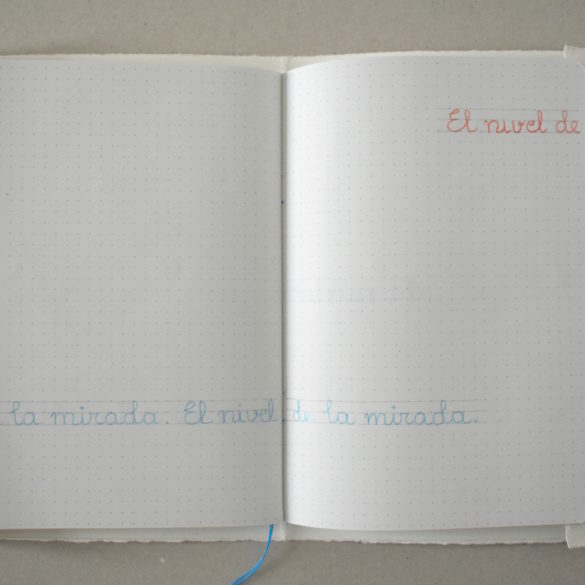 El nivel de
la mirada. El nivel de la mirada.